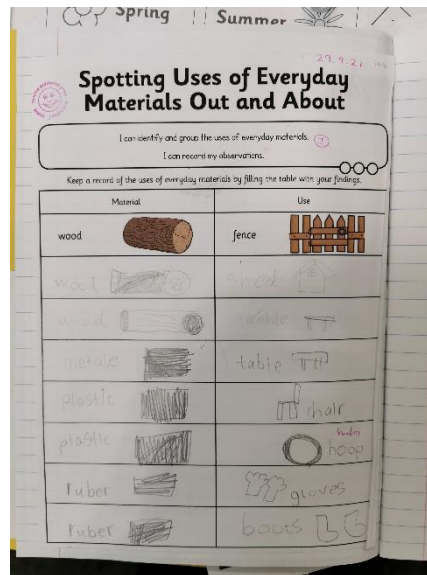 Spring
Summer
29.9.21
Spotting Uses of Everyday
Materials Out and About
I can identify and group the uses of everyday materials.
I can record my observations.
Keep a record of the uses of everyday materials by filling the table with your findings.
Material Use
wood fence
wood shed
wood table
metale table
plastic chair
plastic hoop
ruber gloves
ruber boots